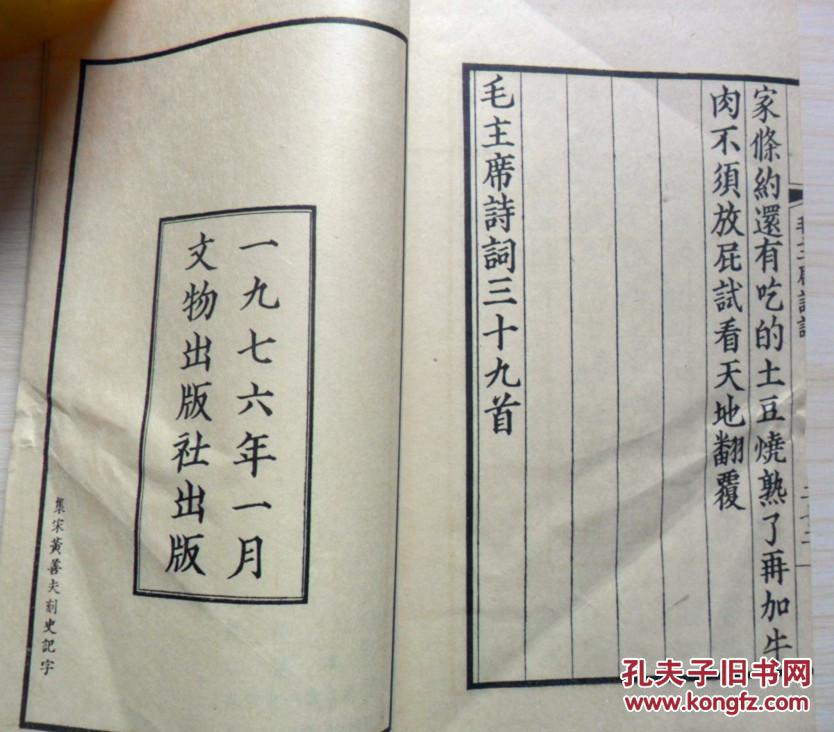 家條約還有吃的土豆燒熟了再加牛
肉不須放屁試看天地翻覆
毛主席詩詞三十九首
毛主席詩詞
一九七六年一月
文物出版社出版
集宋黃善夫刻史記字
孔夫子旧书网
www.kongfz.com